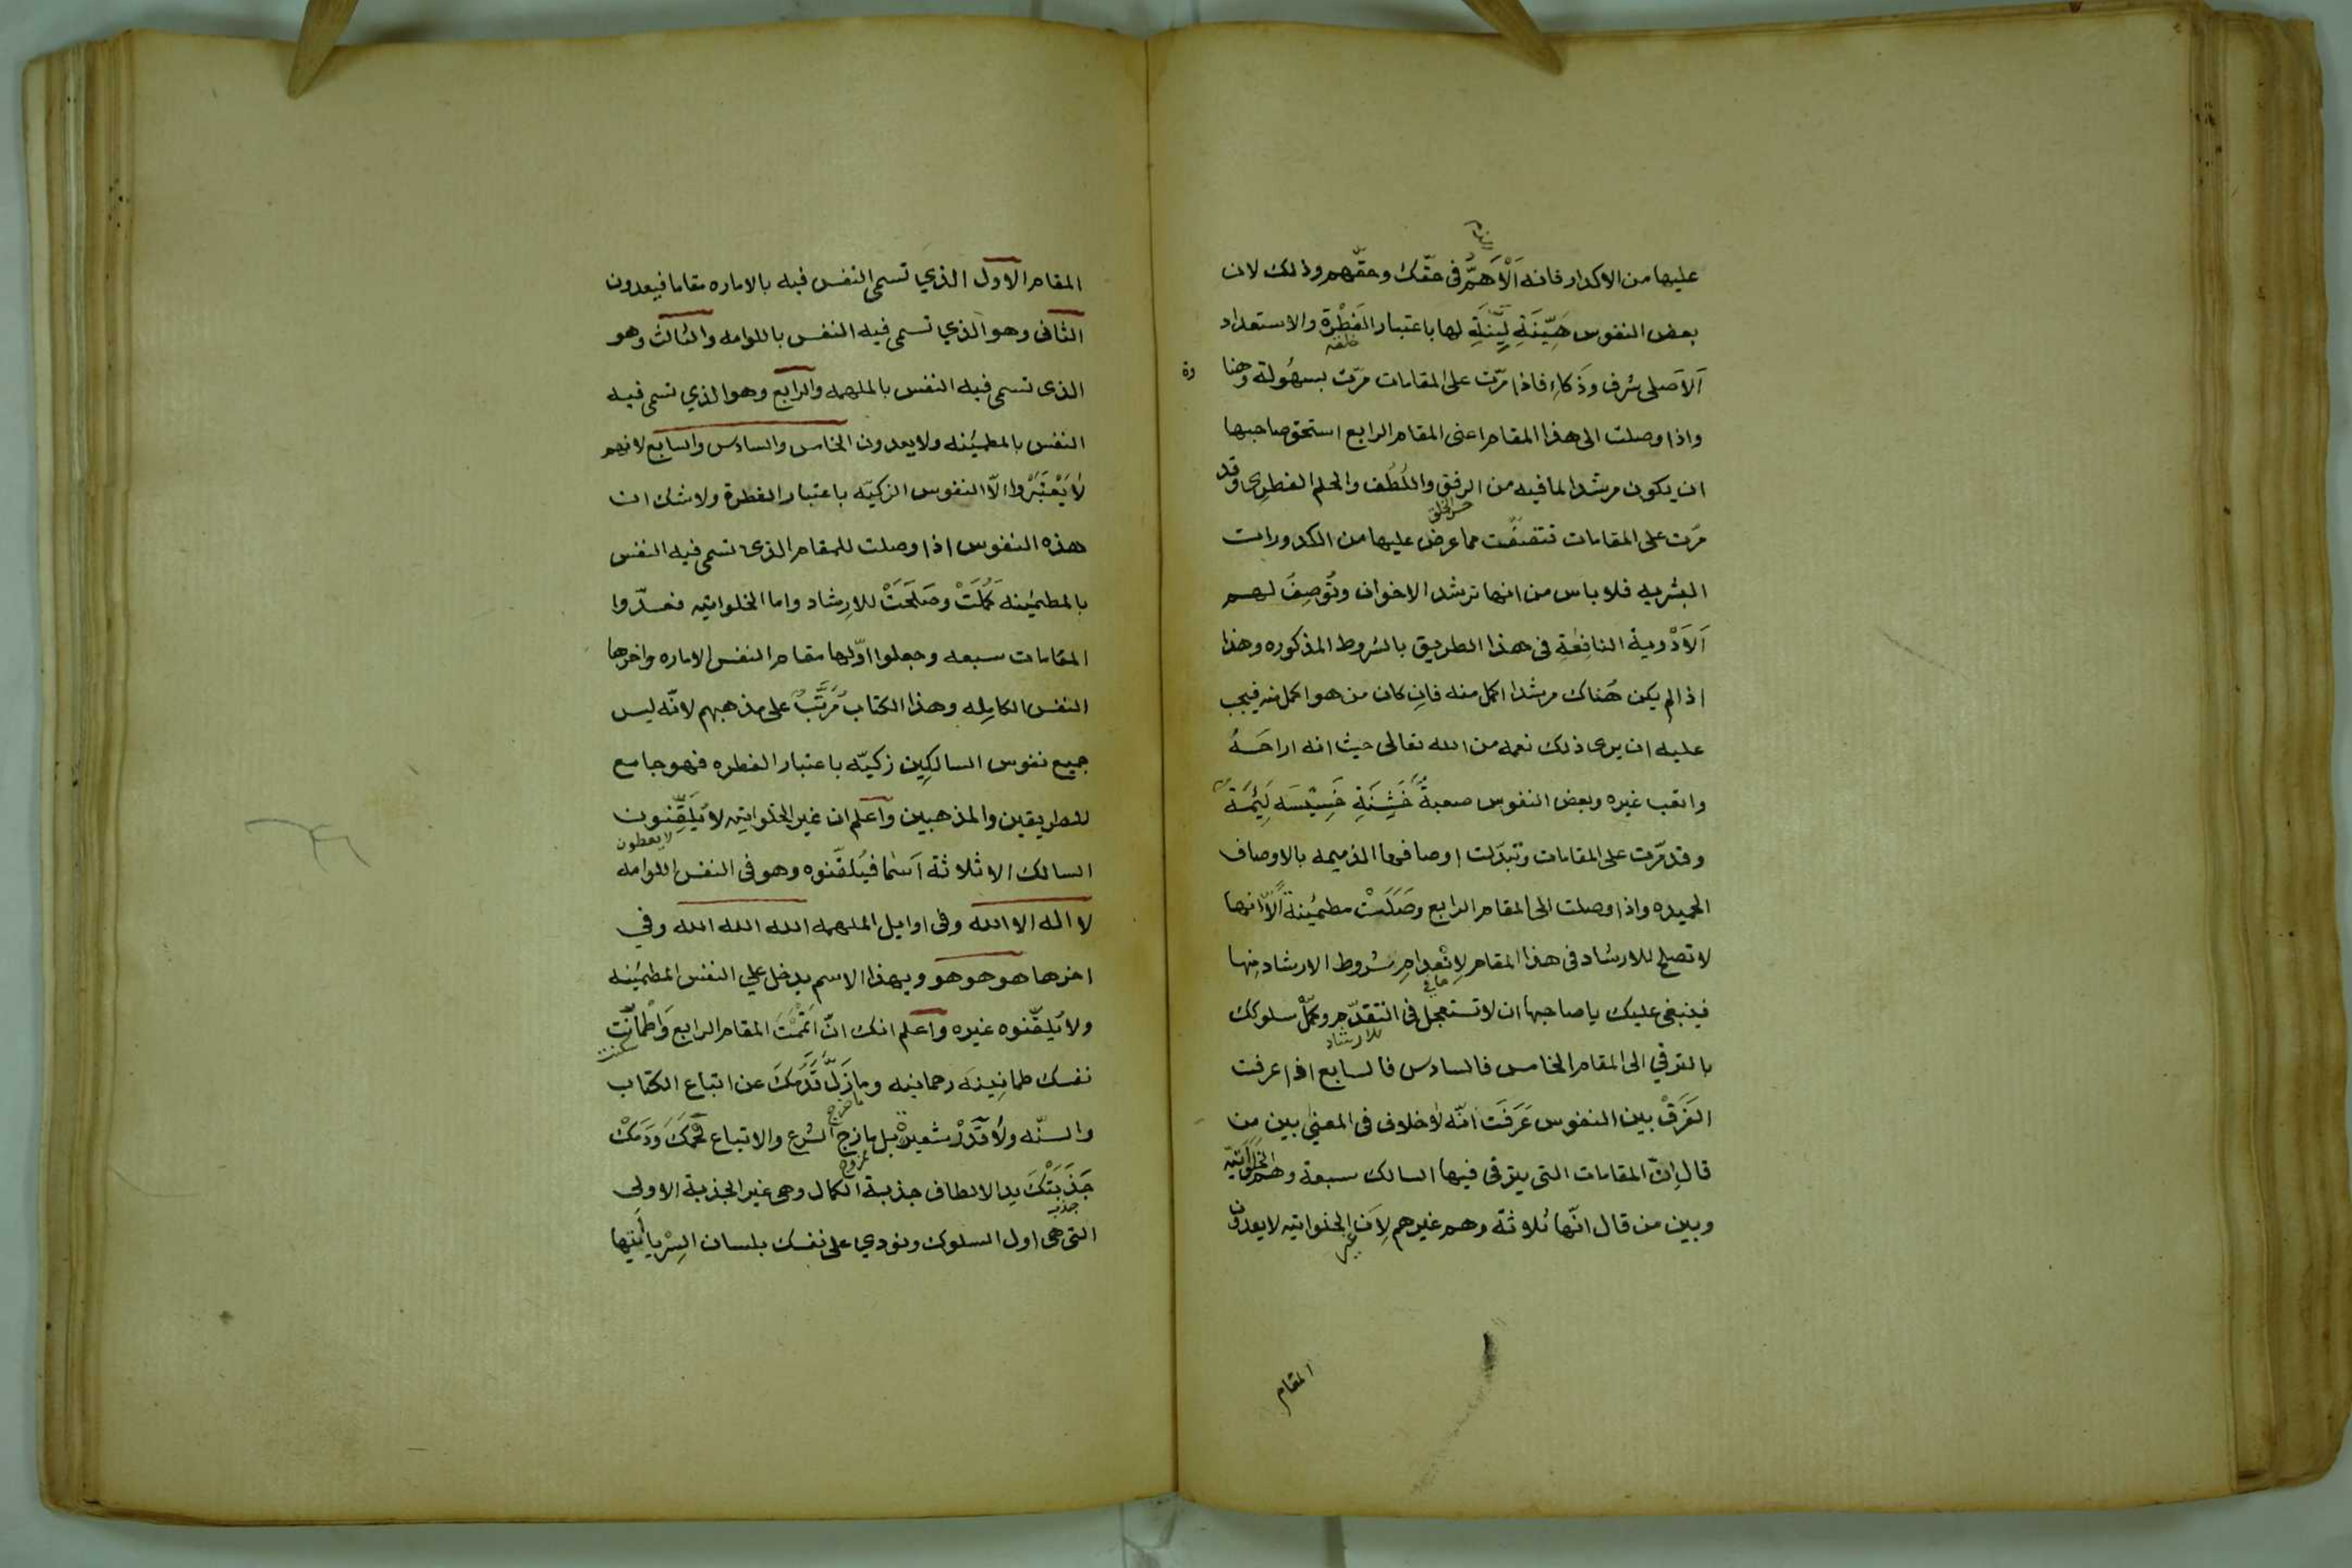 عليها من الاكدار فانه اَلْاَهَمُّ فى حقّك وحقّهم وذلك لان
بعض النفوس هَيِّنَةِ لَيِّنَةِ لها باعتبار الفِطْرَة والاستعداد
خلقه
اَلاَصلى شرف وذَكاءِ فاذا مرّت على المقامات مرّت بسهُولة وهنا
واذا وصلت الى هذا المقام اعنى المقام الرابع استحق صاحبها
ان يكون مرشدا لما فيه من الرفق واللُطْف والحلم الفطرى وقد
حسن الخلق
مرّت على المقامات فتصفّت مما عرض عليها من الكدورات
البشريه فلا باس من انها ترشد الاخوان وتُوصِفُ لهم
اَلاَدْوية النافِعَةِ فى هذا الطريق بالشروط المذكوره وهذا
اذا لم يكن هُناك مرشدا اكمل منه فاِن كان من هو اكمل منه فيجب
عليه ان يرى ذلك نعمه من الله تعالى حيث انه اراحَهُ
واتعب غيره وبعض النفوس صعبةُ خَشِنَةِ خَسِيْسَه لَئِيْمَة
وقد مرّت على المقامات وتبدّلت اوصافها الذميمه بالاوصاف
الحميده واذا وصلت الى المقام الرابع وصَلَتْ مطمئِنة اَلاّ انها
لا تصلح للارشاد فى هذا المقام لاِنْعِدامِ شروط الارشاد مِنها
فينبغى عليك يا صاحبها ان لا تستعجل فى التقدّم وكمّل سلوكك
للارشاد
بالترقي الى المقام الخامس فالسادس فالسابع اذا عرفت
الفَرَقْ بين النفوس عَرَفَتَ انّه لاَ خلاف فى المعنى بين من
قال اِنّ المقامات التى يترقى فيها السالك سبعة وهم الخَلوَاتيّه
وبين من قال انّها ثلاثة وهم غيرهم لِاَن الخلواتيه لا يعدون
غير
المقام
المقام الاول الذي تسمى النفس فيه بالاماره مقاما فيعدون
الثانى وهو الذي تسمى فيه النفس باللوامه والثالث وهو
الذى تسمى فيه النفس بالملهمه والرابع وهو الذي تسمى فيه
النفس بالمطمئِنه ولا يعدون الخامس والسادس والسابع لانهم
لاَ يَعْتَبَرُوا الاّ النفوس الزكيّه باعتبار الفطرة ولا شك ان
هذه النفوس اذا وصلت للمقام الذى تسمى فيه النفس
بالمطمئِنه كَمُلَتْ وصَلَحَتْ للارِشاد واما الخلواتيه فعدّوا
المقامات سبعه وجعلوا اوّلها مقام النفس الاماره واخرها
النفس الكامِله وهذا الكتاب مُرَتَّبُ على مذهبهم لانّه ليس
جميع نفوس السالكِين زكيّه باعتبار الفطره فهو جامع
للطريقين والمذهبين واعلم ان غير الخلواتيه لا يُلَقِّنون
لا يعطون
السالك الا ثلاثة اَسْما فيُلقّنوه وهو فى النفس اللوامه
لا اله الا الله وفى اوايل الملهمه الله الله الله وفي
اخرها هو هو هو وبهذا الاسم يدخل علي النفس المطمئِنه
ولا يُلِقّنوه غيره واعلم انك انّ اتممْتَ المقام الرابع وَاطْمأنّت
سكنت
نفسك طمانِينَه رحمانيه وما زَلّ قَدَمُكَ عن اتباع الكتاب
والسنّه ولاَ قَدَرْ شعيرةْ بل مازج الشرع والاتباع لحمَكَ ودَمَكْ
جَذَبَتْكَ يد الالطاف جذبة الكمال وهى غير الجذبة الاولى
جذبه
التى هى اول السلوك ونودي على نفسك بلسان السِرّ يا اَيتها